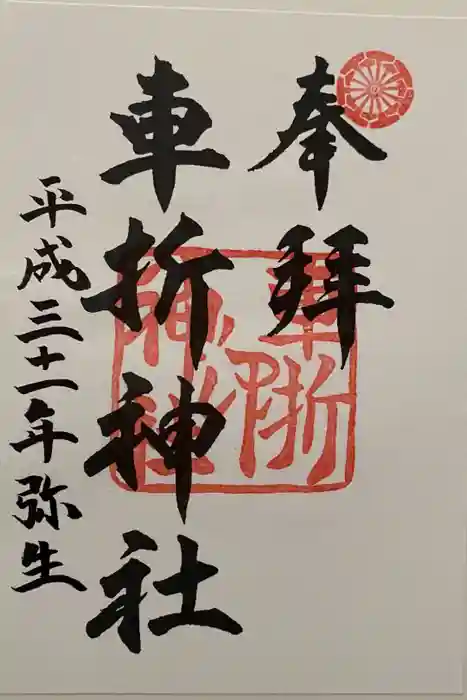 奉拝
車折神社
平成三十一年弥生
車折
神社